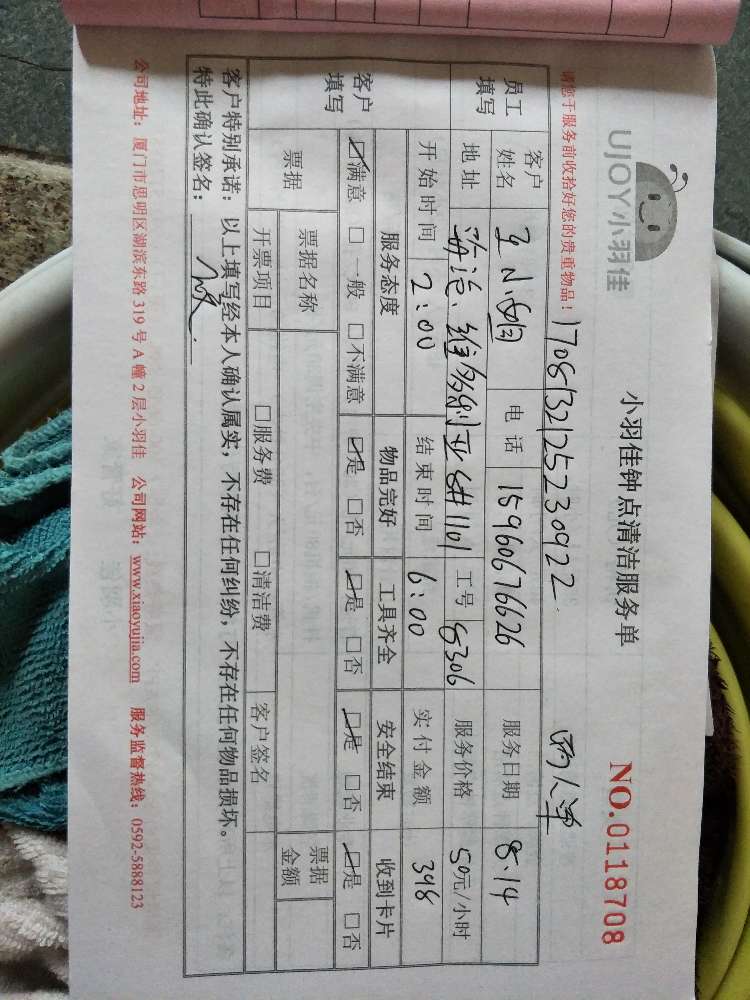 UJOY小羽佳
小羽佳钟点清洁服务单
NO.0118708
请您于服务前收拾好您的贵重物品！
17081321252230922
两人单
员工填写
客户姓名 王小姐 电话 15960676626 服务日期 8.14
地址 海沧、维多利亚6#1101 工号 8306 服务价格 50元/小时
客户填写
开始时间 2:00 结束时间 6:00 实付金额 398
服务态度 物品完好 工具齐全 安全结束 收到卡片
☑满意 □一般 □不满意 ☑是 □否 ☑是 □否 ☑是 □否 ☑是 □否
票据 票据名称 票据金额
开票项目 □服务费 □清洁费 客户签名
客户特别承诺：以上填写经本人确认属实，不存在任何纠纷，不存在任何物品损坏。
特此确认签名：
公司地址：厦门市思明区湖滨东路319号A幢2层小羽佳 公司网站：www.xiaoyujia.com 服务监督热线：0592-5888123